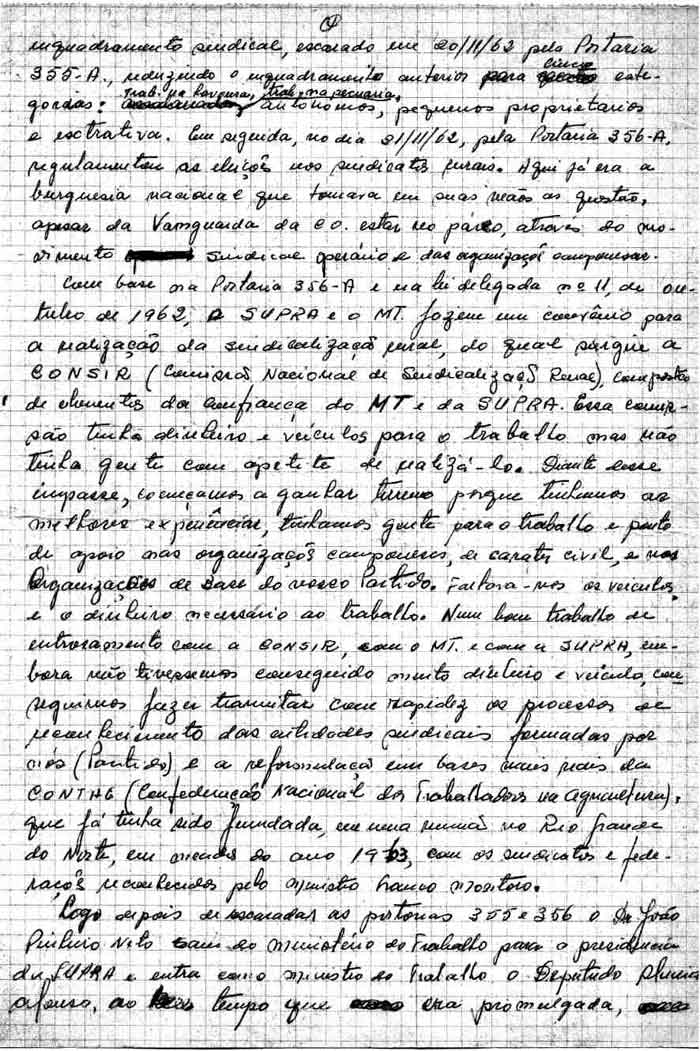 inquadramento sindical, escarado em 20/11/62 pela Portaria
355-A, reduzindo o inquadramento anterior para cinco cate-
gorias: trab. na lavoura, trab. na pecuaria, autônomos, pequenos proprietarios
e extrativa. Em seguida, no dia 21/11/62, pela Portaria 356-A,
regulamentou as eleições nos sindicatos rurais. Aqui já era a
burguesia nacional que tomara em suas mãos as questão,
apesar da Vanguarda da CO. estar no páreo, através do mo-
vimento sindical operário e das organizaçõs camponesas.
Com base na Portaria 356-A e na lei delegada nº 11, de ou-
tubro de 1962, a SUPRA e o MT. fazem um convênio para
a realização da sindicalização rural, do qual surgiu a
CONSIR (Comissão Nacional de Sindicalização Rural), composta
de elementos da confiança do MT e da SUPRA. Essa comis-
são tinha dinheiro e veículos para o trabalho mas não
tinha gente com apetite de realizá-lo. Diante desse
impasse, começamos a ganhar terreno porque tinhamos as
melhores experiências, tinhamos gente para o trabalho e ponto
de apoio nas organizaçõs camponesas, de carater civil, e nas
Organizações de base do nosso Partido. Faltava-nos os veículos
e o dinheiro necessário ao trabalho. Num bom trabalho de
entrosamento com a CONSIR, com o MT. e com a SUPRA, em-
bora não tivessemos conseguido muito dinheiro e veículo, con-
seguimos fazer tramitar com rapidez os processos de
reconhecimento das entidades sindicais formadas por
nós (Partido) e a reformulação em bases mais reais da
CONTAG (Confederação Nacional dos Trabalhadores na Agricultura),
que já tinha sido fundada, em uma reunião no Rio Grande
do Norte, em meados do ano 1963, com os sindicatos e fede-
raçõs reconhecidos pelo ministro Franco Montoro.
Logo depois de escaradas as portarias 355 e 356 o Dr. João
Pinheiro Neto sai do ministério do Trabalho para a presidencia
da SUPRA e entra como ministro do Trabalho o Deputado Almino
Afonso, ao tempo que era promulgada,